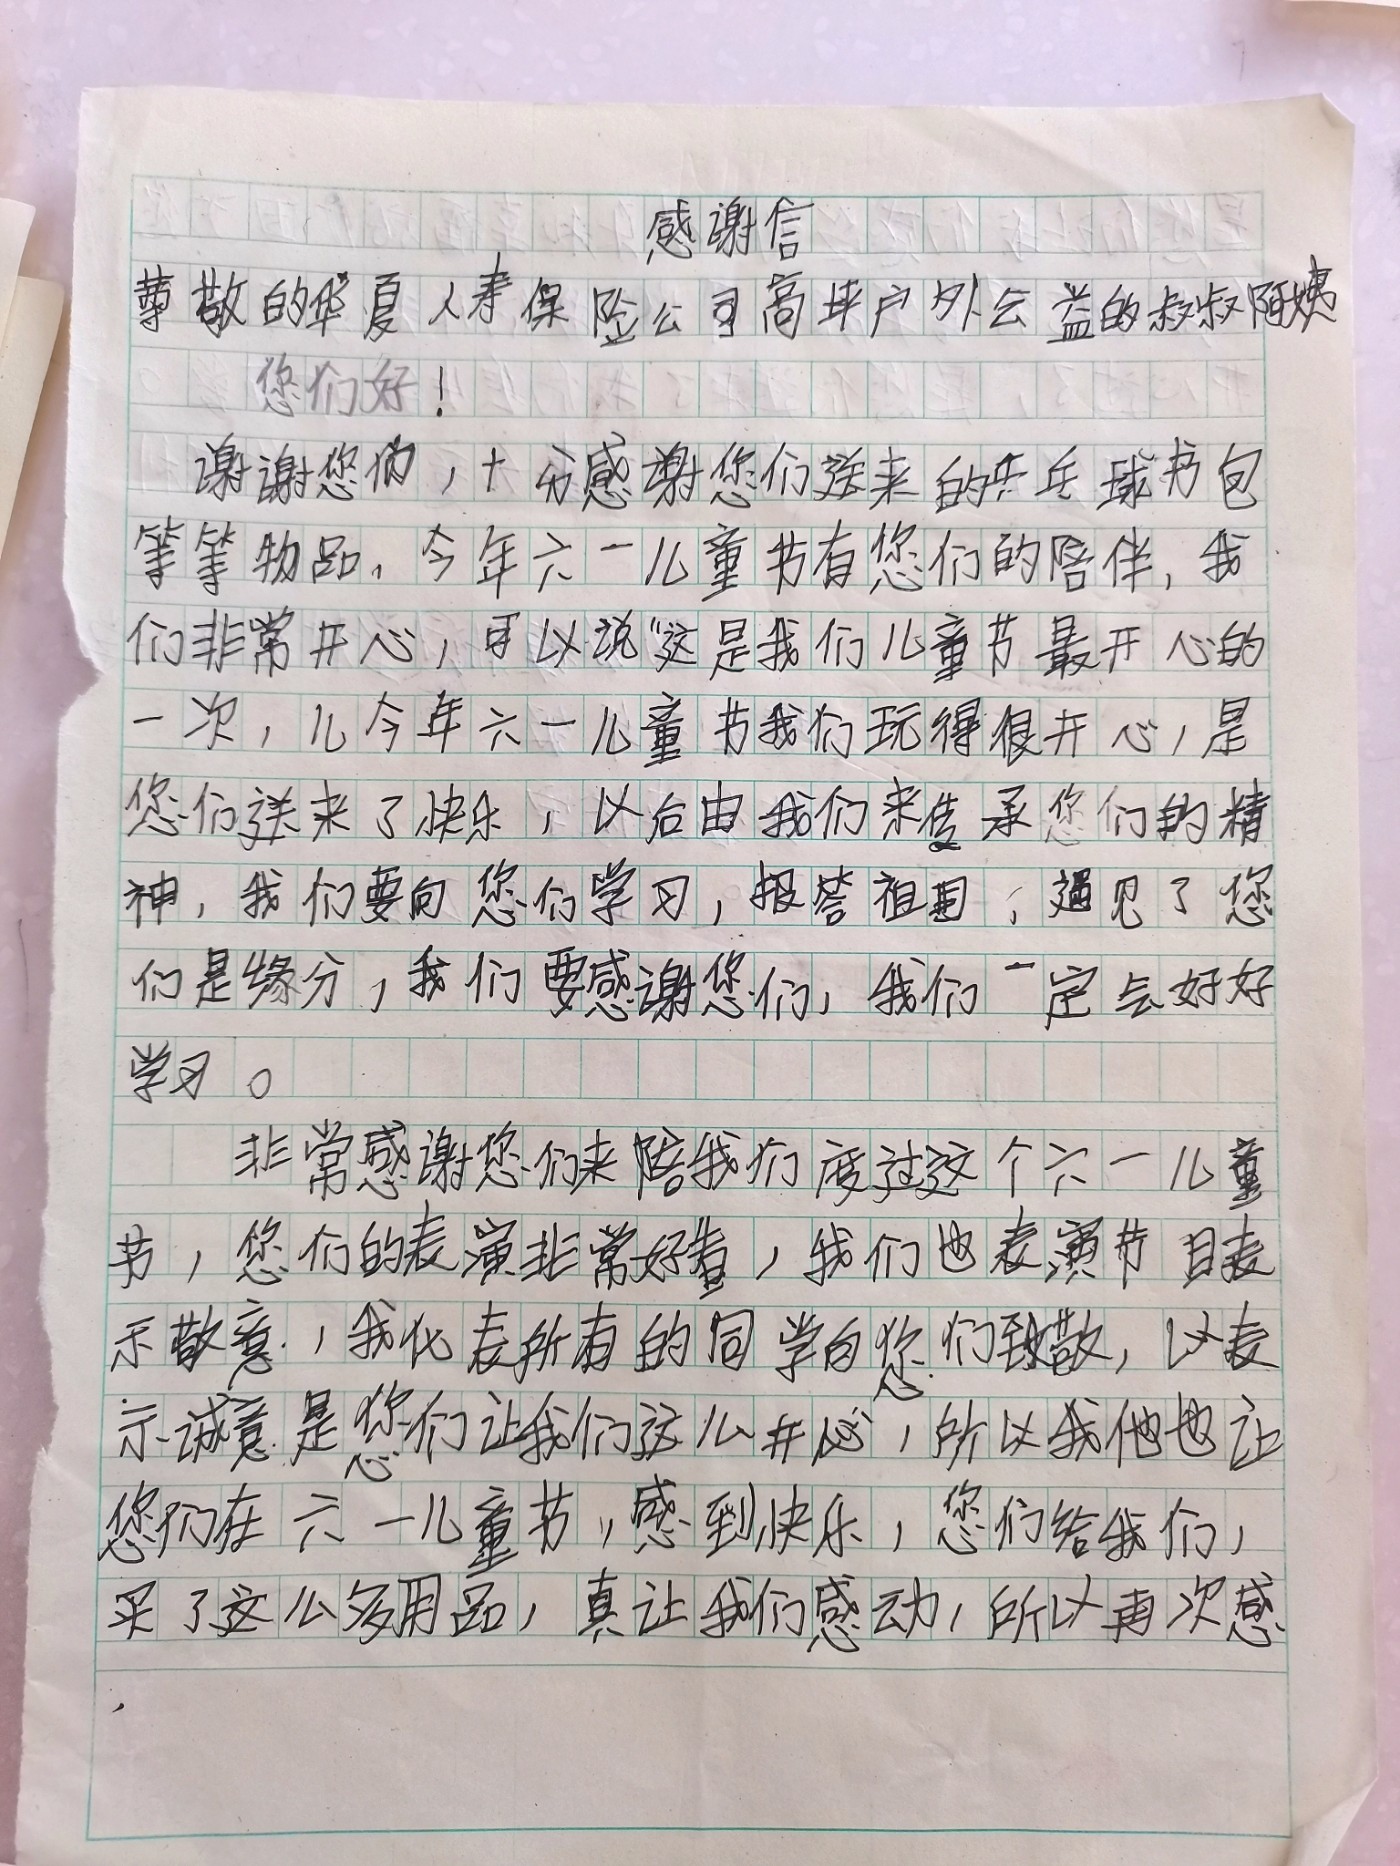 感谢信
尊敬的华夏人寿保险公司高坪户外公益的叔叔阿姨
您们好！
谢谢您们，十分感谢您们送来的乒乓球书包
等等物品，今年六一儿童节有您们的陪伴，我
们非常开心，可以说“这是我们儿童节最开心的
一次，儿今年六一儿童节我们玩得很开心，是
您们送来了快乐，以后由我们来传承您们的精
神，我们要向您们学习，报答祖国，遇见了您
们是缘分，我们要感谢您们，我们一定会好好
学习。
非常感谢您们来陪我们度过这个六一儿童
节，您们的表演非常好看，我们也表演节目表
示敬意，我化表所有的同学向您们致敬，以表
示诚意是您们让我们这么开心，所以我他也让
您们在六一儿童节，感到快乐，您们给我们，
买了这么多用品，真让我们感动，所以再次感